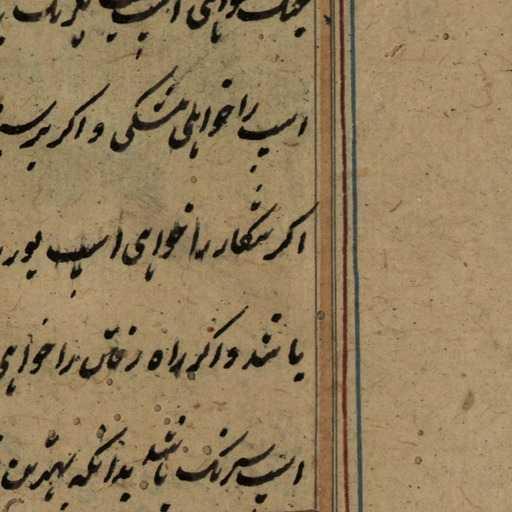 جنک خواهی اسب یکرنک
اسب را خواهی مشکی و اکر بر
اکر شکار را خواهی اسب بور
باشد و اکر راه رفتن را خواهی
اسب سرنک باشد بدانکه بهترین